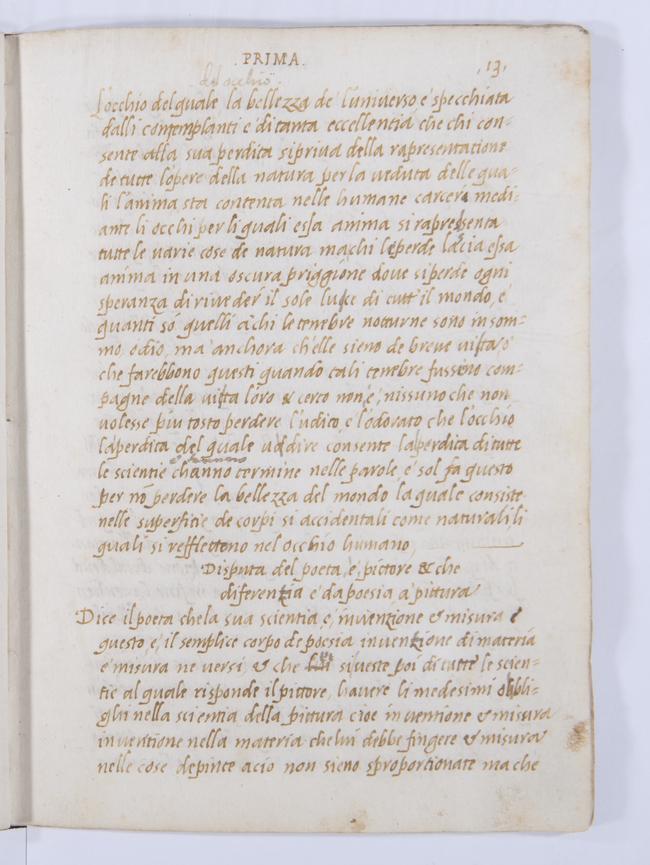 .PRIMA.
,13,
del occhio
L'occhio del quale la bellezza de l'universo é specchiata
dalli contemplanti é di tanta eccellentia che chi con-
sente alla sua perdita si priva della rapresentatione
de tutte l'opere della natura per la veduta delle qua-
li l'anima, sta contenta nelle humane carceri, medi-
ante li occhi per li quali essa anima si rapresenta
tutte le varie cose de natura ma chi le perde lascia essa
anima in una oscura priggione dove si perde ogni
speranza di riveder il sole luce di tutt'il mondo, é
quanti só quelli á chi le tenebre notturne sono in som-
mo, odio, ma anchora ch'elle sieno de breve vista, ó
che farebbono questi quando tali tenebre fussino com-
pagne della vista loro & certo non é, nissuno che non
volesse piu tosto perdere l'udito, é l'odorato che l'occhio
la perdita del quale uddire consente la perdita di tutte
le scientie ch'anno termine nelle parole, é sol fa questo
per nō perdere la bellezza del mondo la quale consiste
nelle superfitie de corpi si accidentali come naturali li
quali si refflettono nel occhio humano,
Disputa del poeta, é, pittore & che
diferenzia é da poesia a pittura
Dice il poeta che la sua scientia é, invenzione & misura é
questo, é, il semplice corpo de poesia invenzione di materia
é misura ne versi, & che si veste poi di tutte le scien-
tie al quale risponde il pittore, havere li medesimi obbli-
ghi nella scientia della pittura cioe inventione & misura
inventione nella materia che lui debbe fingere & misura
nelle cose depinte acio non sieno sproportionate ma che